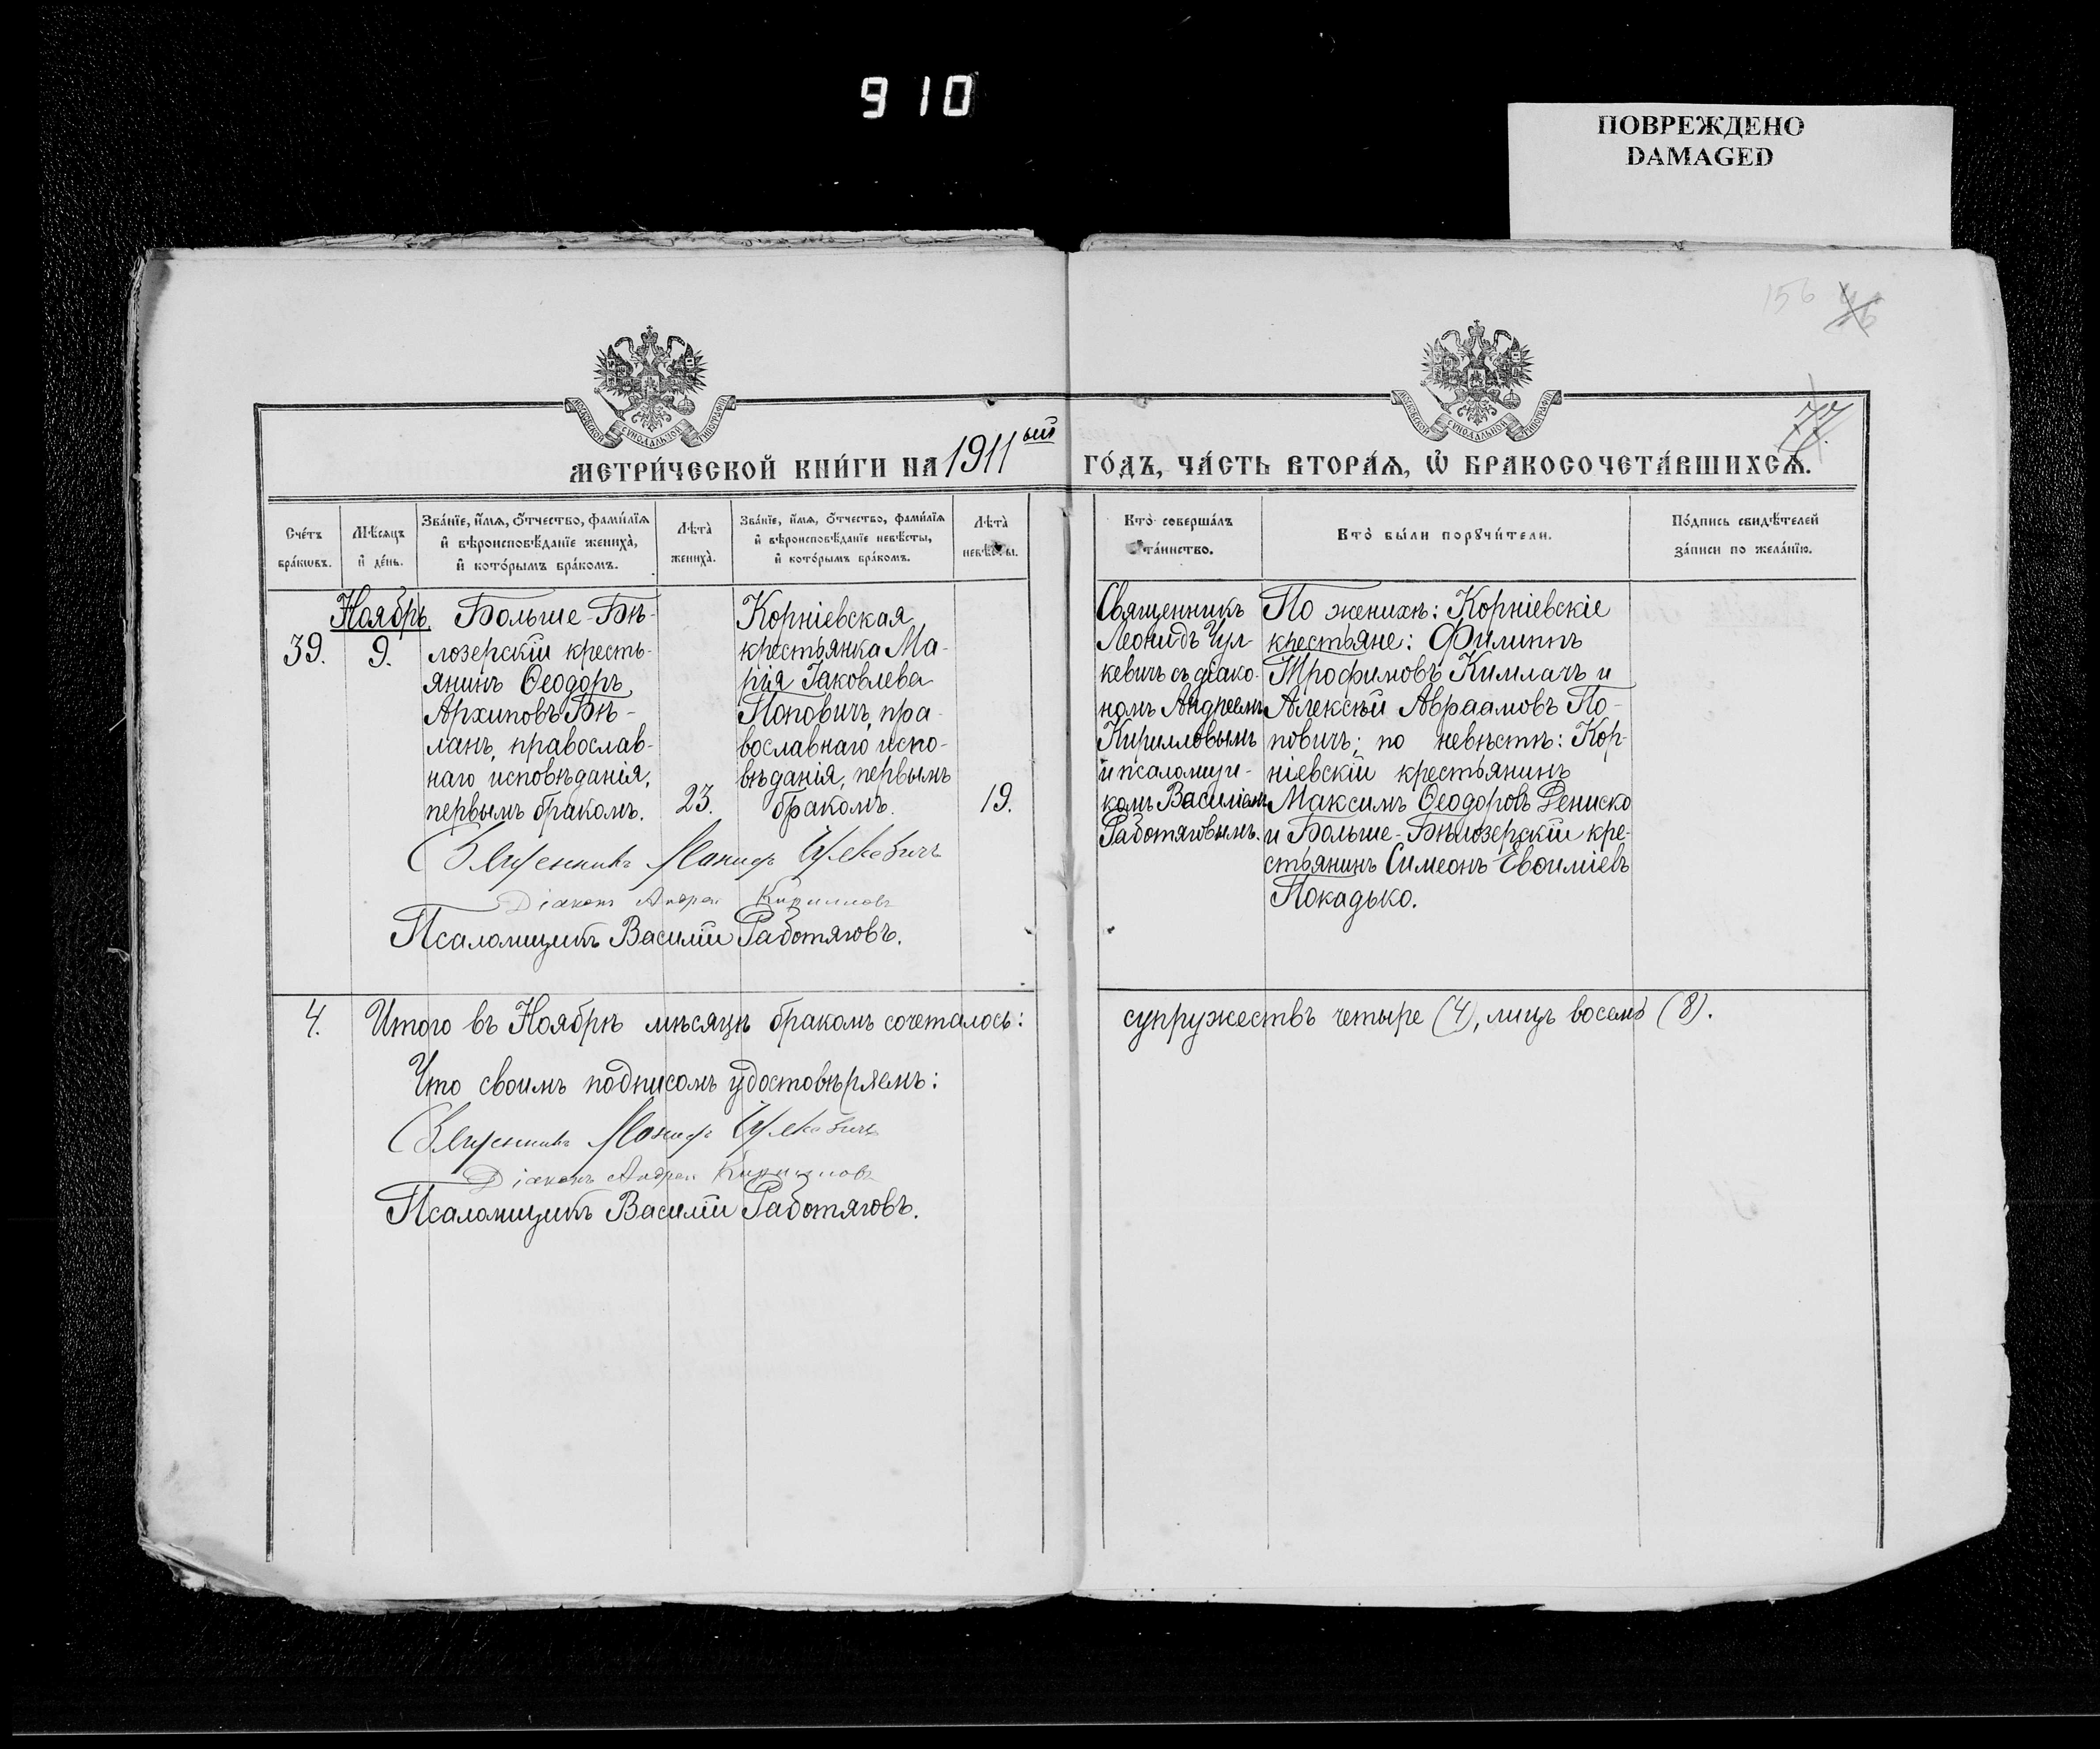 910
ПОВРЕЖДЕНО
DAMAGED
156
77.
МОСКОВСКОЙ СѴНОДАЛЬНОЙ ТИПОГРАФІИ
МОСКОВСКОЙ СѴНОДАЛЬНОЙ ТИПОГРАФІИ
МЕТРИ́ЧЕСКОЙ КНИ́ГИ НА 1911ый ГО́ДЪ, ЧА́СТЬ ВТОРА́Ѧ, Ѽ БРАКОСОЧЕТА́ВШИХСѦ.
Сче́тъ
бра́кѡвъ.
Мѣ́сѧцъ
и҆ де́нь.
Зва́нїе, и҆́мѧ, ѻ҆́тчество, фами́лїѧ
и҆ вѣроисповѣ́данїе жениха̀,
и҆ кото́рымъ бра́комъ.
Лѣта̀
жениха̀.
Зва́нїе, и҆́мѧ, ѻ҆́тчество, фами́лїѧ
и҆ вѣроисповѣ́данїе невѣ́сты,
и҆ кото́рымъ бра́комъ.
Лѣта̀
невѣ́сты.
Кто̀ соверша́лъ
та́инство.
Кто̀ бы́ли порꙋчи́тели.
По́дпись свидѣ́телей
за́писи по жела́нїю.
39.
Ноябрь
9.
Больше-Бѣ-
лозерскій кресть-
янинъ Ѳеодоръ
Архиповъ Бѣ-
ланъ, православ-
наго исповѣданія,
первымъ бракомъ.
23.
Корніевская
крестьянка Ма-
рія Іаковлева
Поповичъ, пра-
вославнаго испо-
вѣданія, первымъ
бракомъ.
19.
Священникъ
Леонидъ Цул-
кевичъ съ діако-
номъ Андреемъ
Кирилловымъ
и псаломщи-
комъ Василіемъ
Работяговымъ.
По женихѣ: Корніевскіе
крестьяне: Филиппъ
Трофимовъ Кимлачъ и
Алексѣй Авраамовъ По-
повичъ; по невѣстѣ: Кор-
ніевскій крестьянинъ
Максимъ Ѳеодоровъ Дениско
и Больше-Бѣлозерскій кре-
стьянинъ Симеонъ Евѳиміевъ
Покадько.
Священникъ Леонидъ Цулкевичъ
Діаконъ Андрей Кирилловъ
Псаломщикъ Василій Работяговъ.
4. Итого въ Ноябрѣ мѣсяцѣ бракомъ сочеталось: супружествъ четыре (4), лицъ восемь (8).
Что своимъ подписомъ удостовѣряемъ:
Священникъ Леонидъ Цулкевичъ
Діаконъ Андрей Кирилловъ
Псаломщикъ Василій Работяговъ.